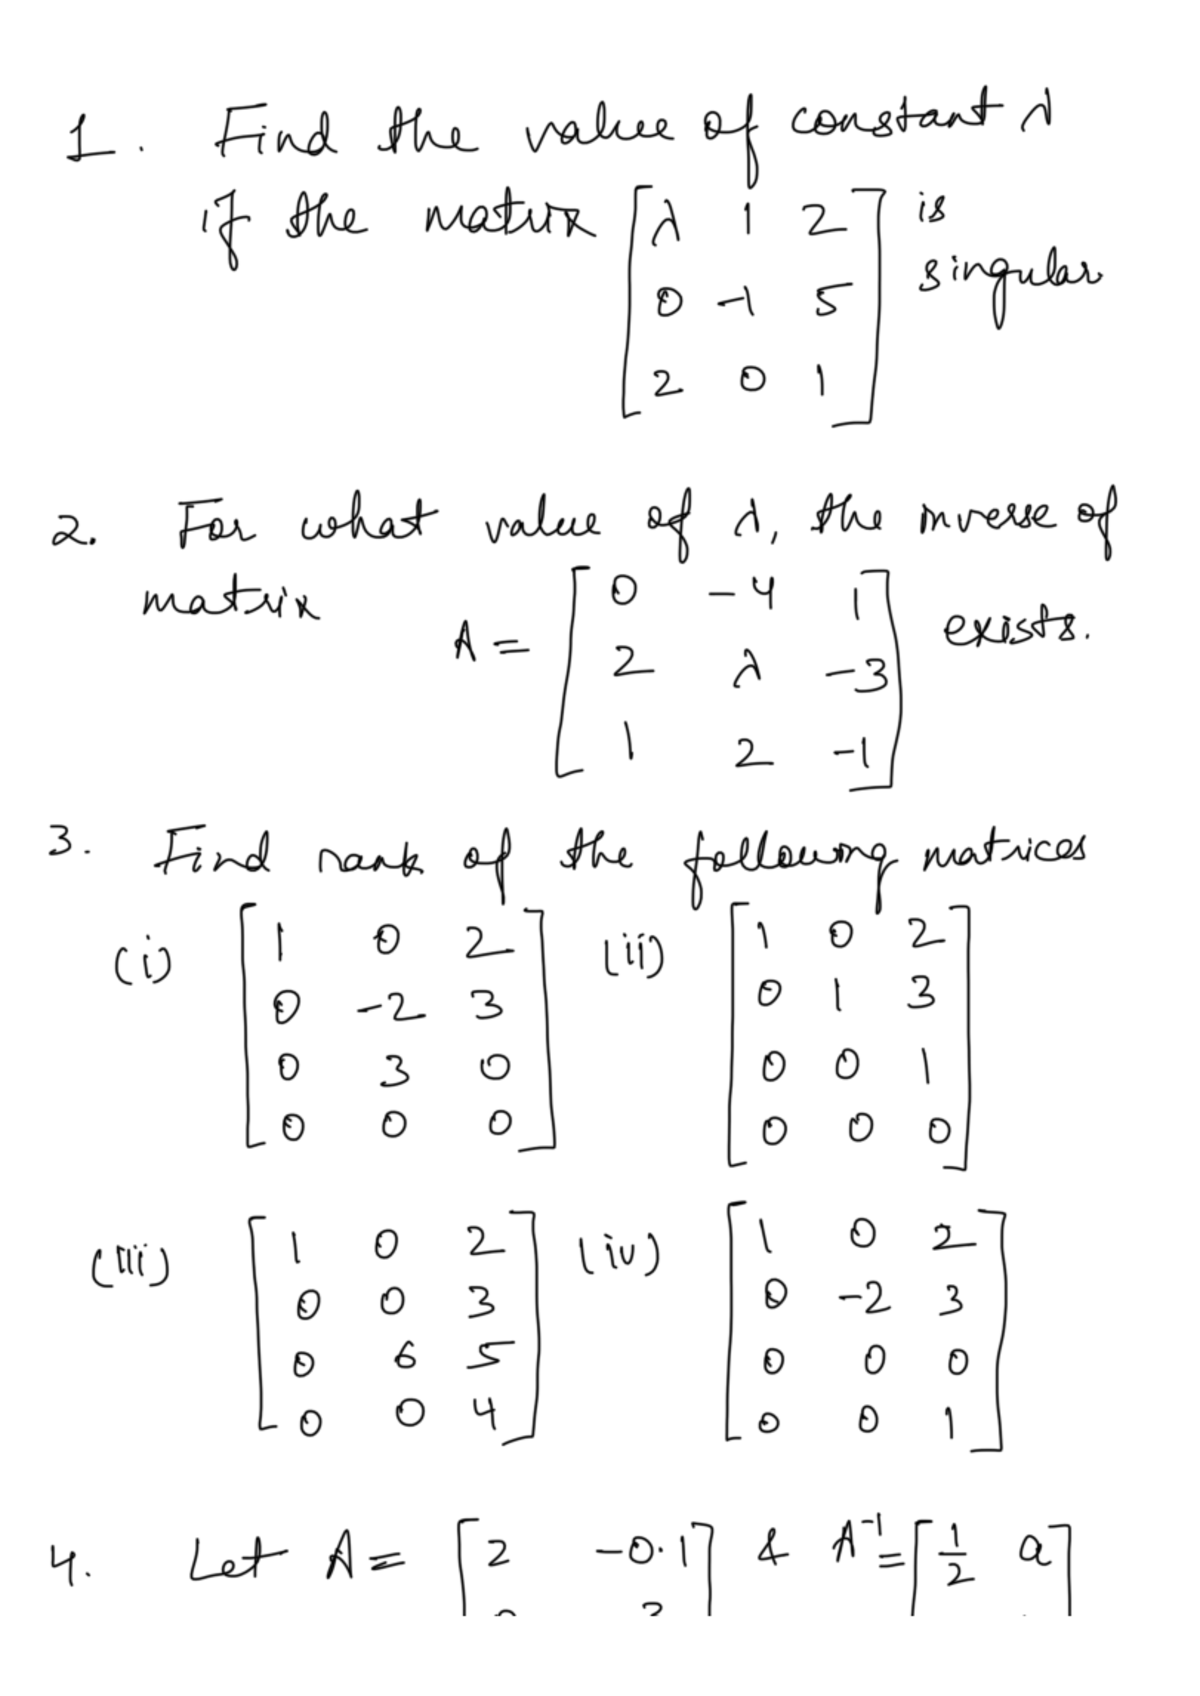 1. Find the value of constant λ
if the matrix [λ 1 2 is
0 -1 5 singular.
2 0 1]
2. For what value of λ, the inverse of
matrix
A = [0 -4 1
2 λ -3 exists.
1 2 -1]
3. Find rank of the following matrices
(i) [1 0 2
0 -2 3
0 3 0
0 0 0]
(ii) [1 0 2
0 1 3
0 0 1
0 0 0]
(iii) [1 0 2
0 0 3
0 6 5
0 0 4]
(iv) [1 0 2
0 -2 3
0 0 0
0 0 1]
4. Let A = [2 -0.1] & A⁻¹ = [1/2 a]